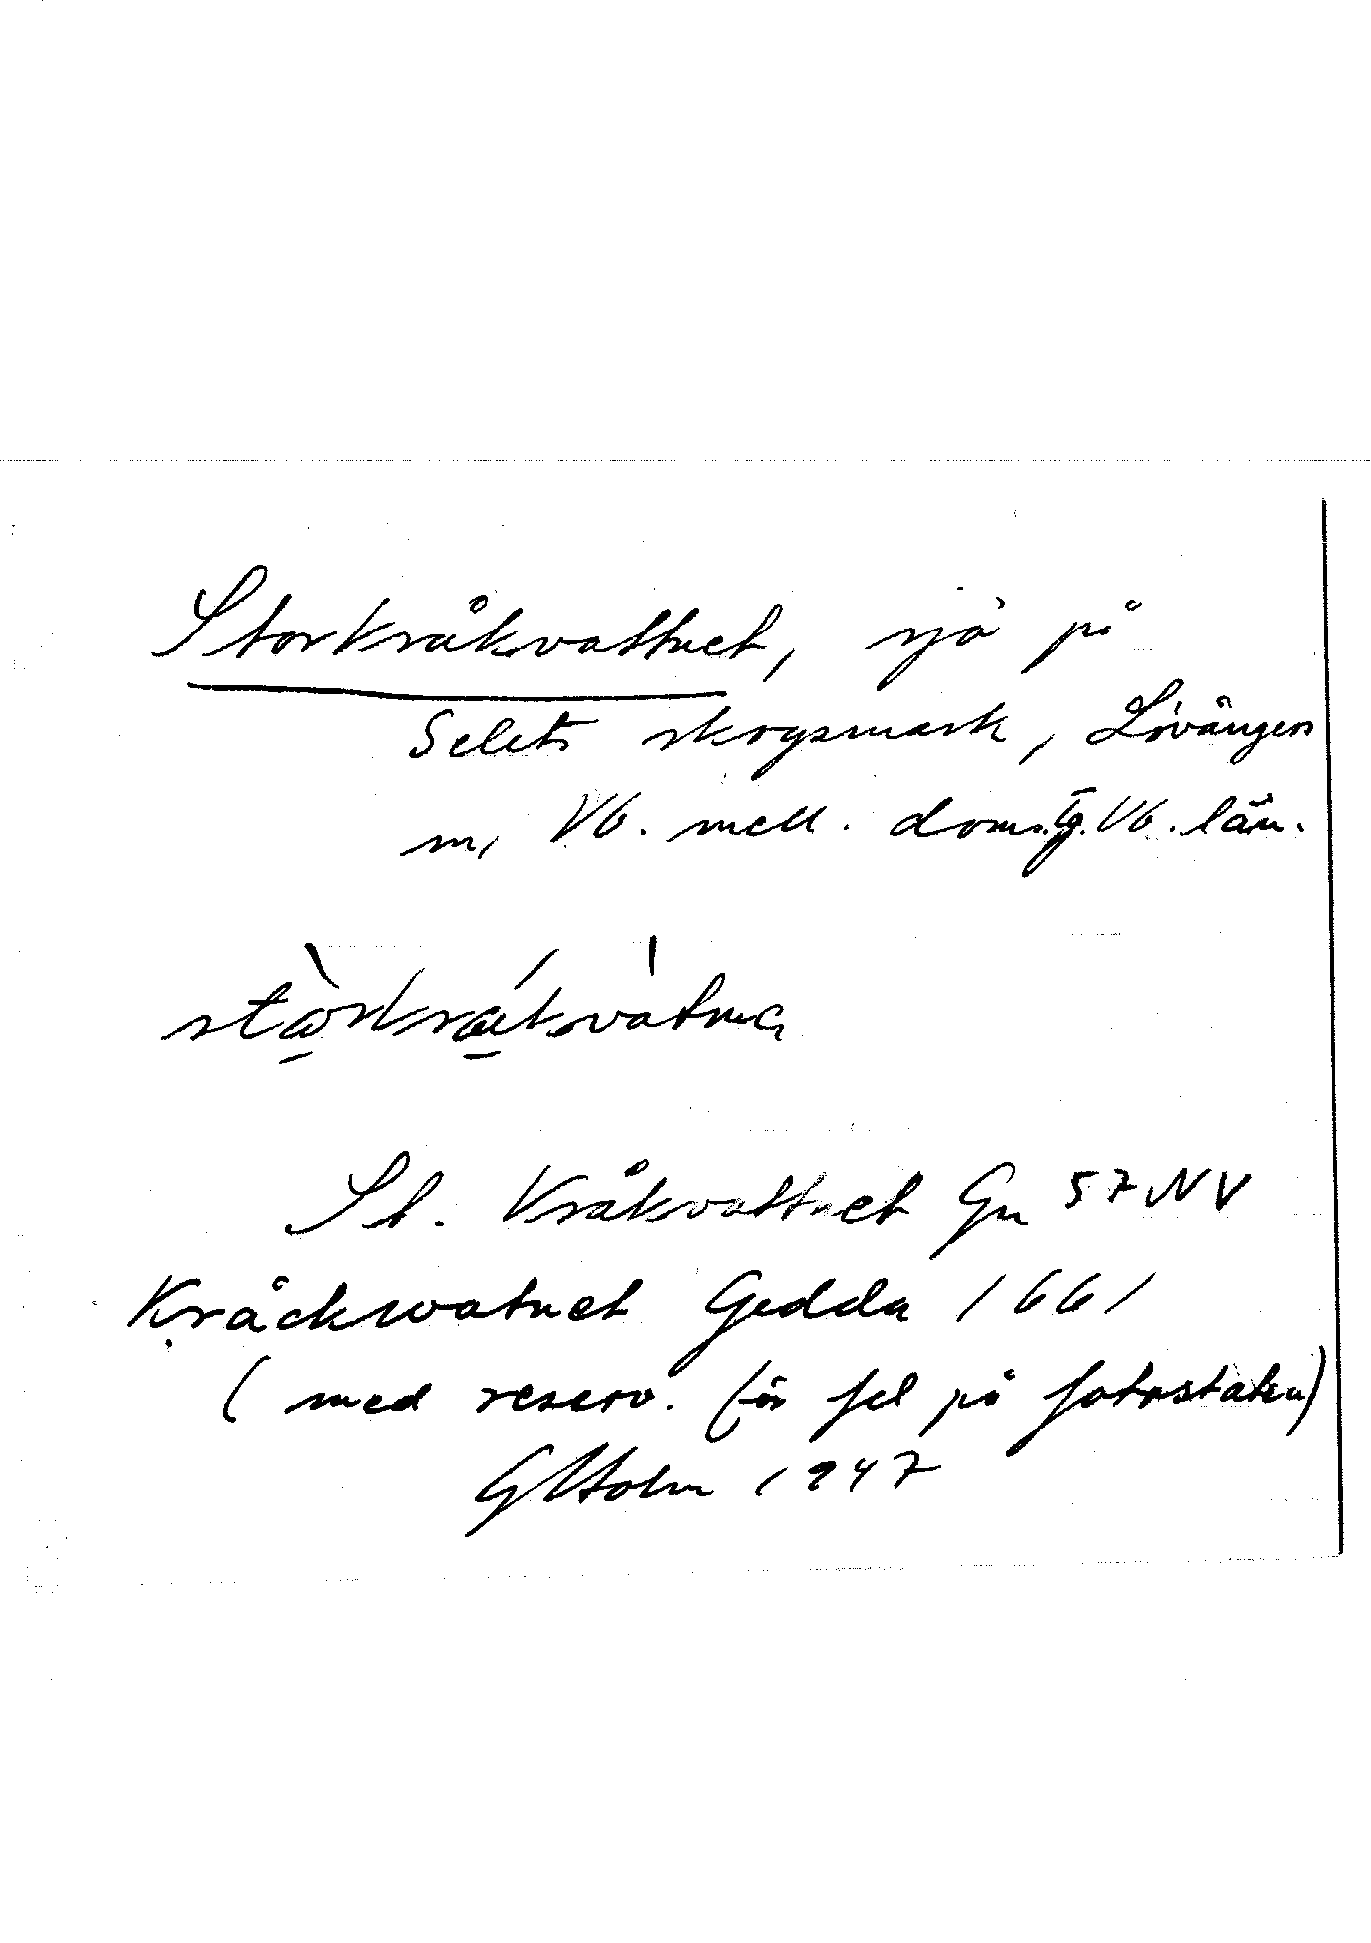 Storkråkvattnet, sjö på
Selets skogsmark, Lövångers
m, Vb. mell. doms.tg. Vb. län.
St. Kråkvattnet Gn 57 NV
Kråckwatnet Gedda 1661
(med reserv. för fel på fotostaten)
GHolm 1947